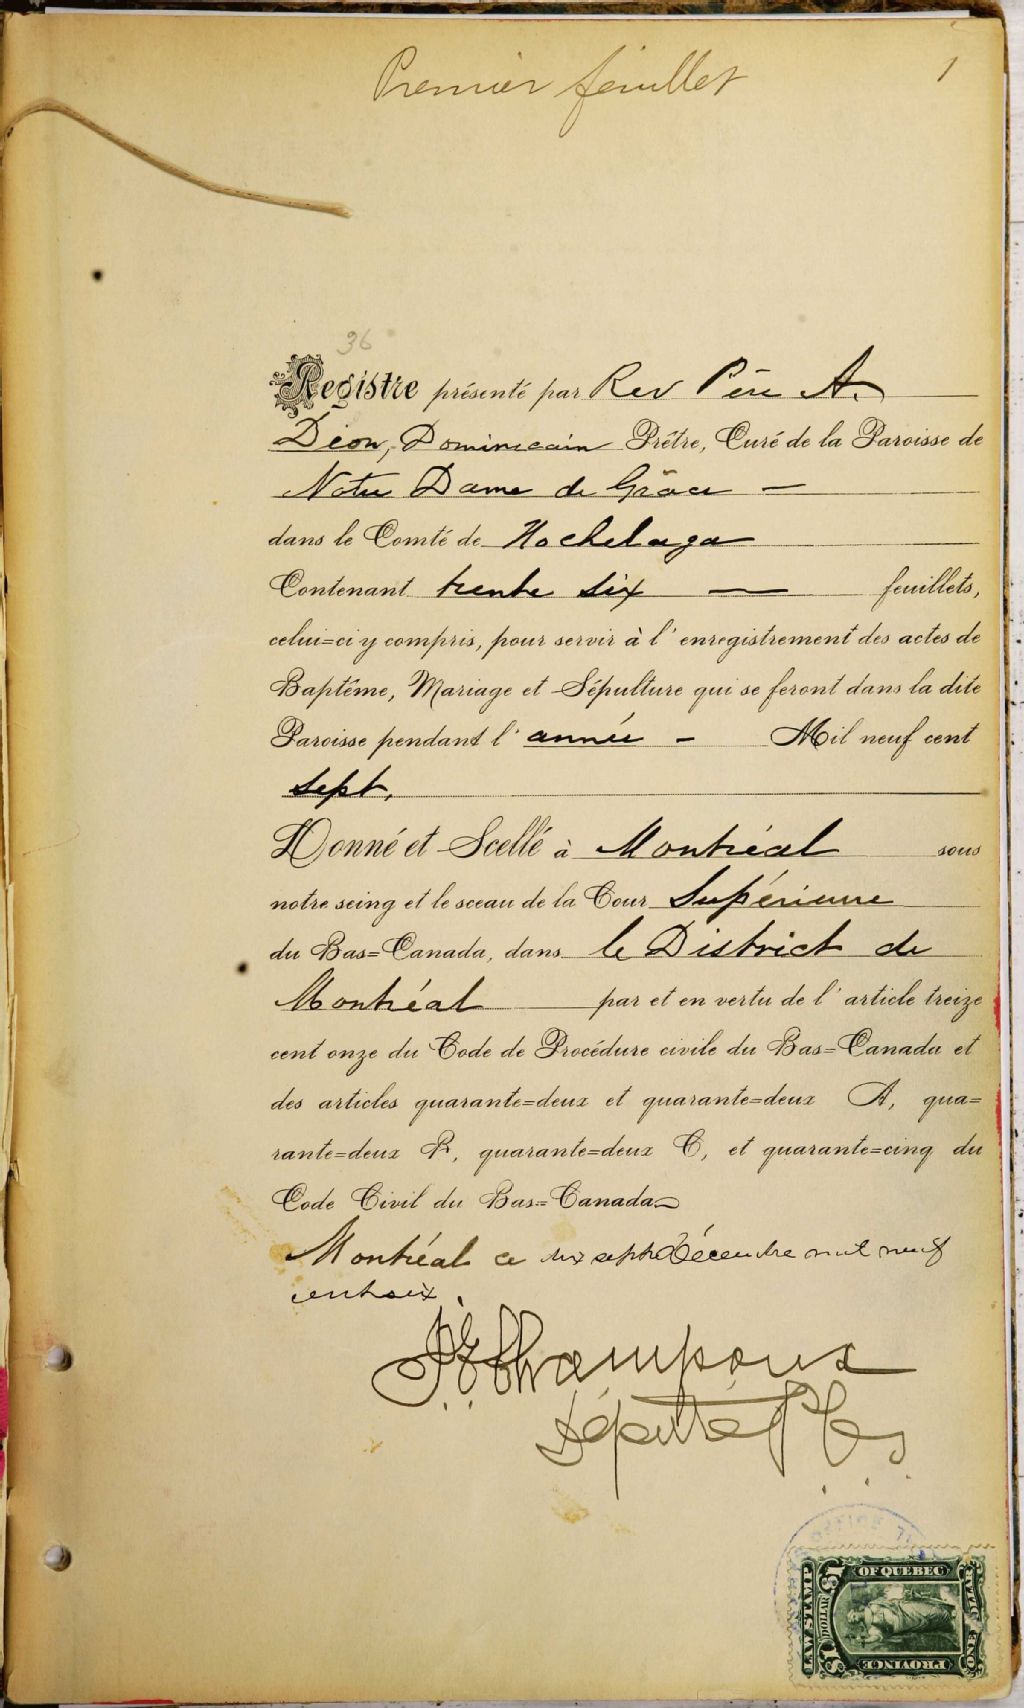 Premier feuillet
1
36
Registre présenté par Rev Père A.
Dion, Dominicain Prêtre, Curé de la Paroisse de
Notre Dame de Grâce —
dans le Comté de Hochelaga
Contenant trente six — feuillets,
celui=ci y compris, pour servir à l'enregistrement des actes de
Baptême, Mariage et Sépulture qui se feront dans la dite
Paroisse pendant l'année - Mil neuf cent
sept,
Donné et Scellé à Montréal sous
notre seing et le sceau de la Cour Supérieure
du Bas=Canada, dans le District de
Montréal par et en vertu de l'article treize
cent onze du Code de Procédure civile du Bas=Canada et
des articles quarante=deux et quarante=deux A, qua=
rante=deux B, quarante=deux C, et quarante=cinq du
Code Civil du Bas=Canada
Montréal ce dix sept Décembre mil neuf
cent six.
Champoux
Député P
OFFICE
LAW STAMP
$1 DOLLAR $1
OF QUEBEC
PROVINCE
ONE DOLLAR